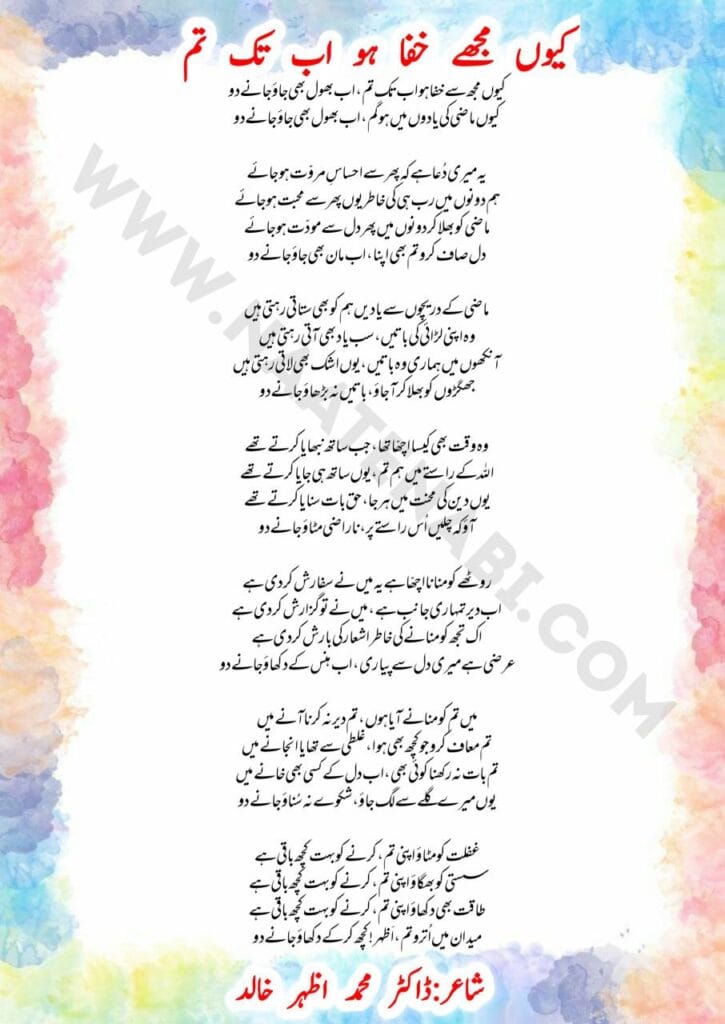 کیوں مجھے خفا ہو اب تک تم
کیوں مجھ سے خفا ہو اب تک تم، اب بھول بھی جاؤ جانے دو
کیوں ماضی کی یادوں میں ہو گم، اب بھول بھی جاؤ جانے دو
یہ میری دُعا ہے کہ پھر سے احساسِ مروّت ہو جائے
ہم دونوں میں رب ہی کی خاطر یوں پھر سے محبت ہو جائے
ماضی کو بھلا کر دونوں میں پھر دل سے مودّت ہو جائے
دل صاف کرو تم بھی اپنا، اب مان بھی جاؤ جانے دو
ماضی کے دریچوں سے یادیں ہم کو بھی ستاتی رہتی ہیں
وہ اپنی لڑائی کی باتیں، سب یاد بھی آتی رہتی ہیں
آنکھوں میں ہماری وہ باتیں، یوں اشک بھی لاتی رہتی ہیں
جھگڑوں کو بھلا کر آ جاؤ، باتیں نہ بڑھاؤ جانے دو
وہ وقت بھی کیسا اچھّا تھا، جب ساتھ نبھایا کرتے تھے
اللہ کے راستے میں ہم تم، یوں ساتھ ہی جایا کرتے تھے
یوں دین کی محنت میں ہر جا، حق بات سنایا کرتے تھے
آؤ کہ چلیں اُس راستے پر، ناراضی مٹاؤ جانے دو
روٹھے کو منانا اچھّا ہے یہ میں نے سفارش کر دی ہے
اب دیر تمہاری جانب ہے، میں نے تو گزارش کر دی ہے
اک تجھ کو منانے کی خاطر اشعار کی بارش کر دی ہے
عرضی ہے میری دل سے پیاری، اب ہنس کے دکھاؤ جانے دو
میں تم کو منانے آیا ہوں، تم دیر نہ کرنا آنے میں
تم معاف کرو جو کچھ بھی ہوا، غلطی سے تھا یا انجانے میں
تم بات نہ رکھنا کوئی بھی، اب دل کے کسی بھی خانے میں
یوں میرے گلے سے لگ جاؤ، شکوے نہ سُناؤ جانے دو
غفلت کو مٹاؤ اپنی تم، کرنے کو بہت کچھ باقی ہے
سستی کو بھگاؤ اپنی تم، کرنے کو بہت کچھ باقی ہے
طاقت بھی دکھاؤ اپنی تم، کرنے کو بہت کچھ باقی ہے
میدان میں اُترو تم، اَظہر! کچھ کر کے دکھاؤ جانے دو
شاعر: ڈاکٹر محمد اظہر خالد
WWW.NAATENABI.COM